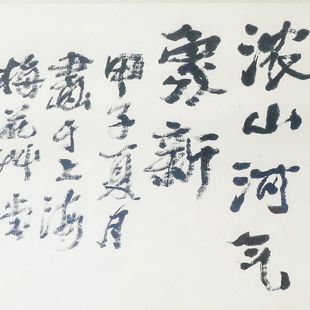 浓山河气
象新
甲子夏月
画于上海
梅花草堂